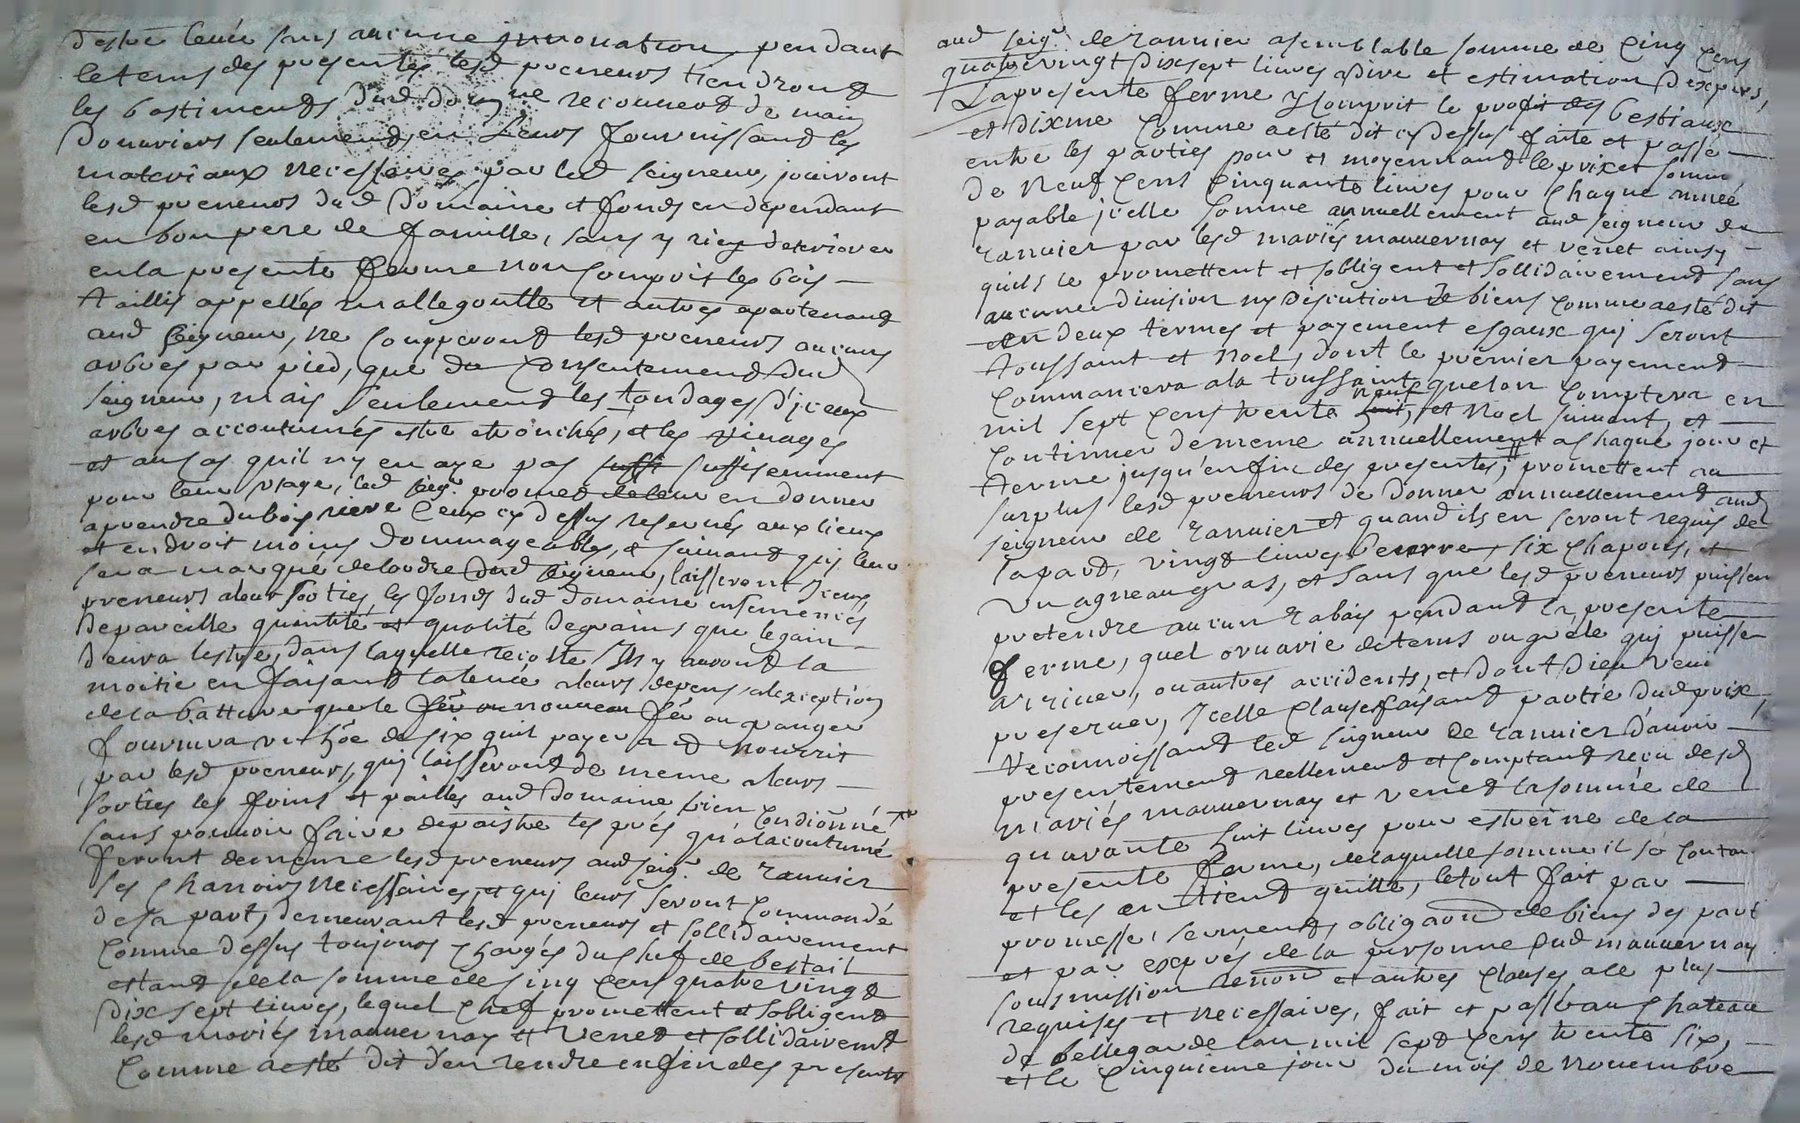 destre levée sans aucune innovation, pendant
le tems des presentes lesd preneurs tiendront
les bastiments dud domaine recouvert de main
Douvriers seulement en Leurs fournissant les
materiaux necessaires par led seigneur, jouiront
lesd preneurs dud Domaine et fonds en dependant
en bon pere de famille, sans y rien deteriorer
en la presente ferme non compris les bois
taillis appellés mallegoutte et autres apartenant
aud seigneur, ne coupperont lesd preneurs aucuns
arbres par pied, que du consentement dud
seigneur, mais seulement les tondages d'iceux
arbres accoutumés estre etronchés, et les vinages
et au cas quil n'y en aye pas suffi suffisemment
pour leur usage, led seigr promet de leur en donner
a prendre du bois ceux cy dessus reservés aux lieux
et endroit moins dommageables, et suivant quil leur
sera marqué de lordre dud seigneur, laisseront iceux
preneurs a leur sorties les fonds dud domaine ensemencés
de pareille quantité et qualité de grains que le gain
devra lestre, dans laquelle recolte ils y auront la
moitié en faisant la levée a leurs depens a lexception
de la batture que le nouveau
fournira de six quil payera et nourrit
par lesd preneurs, qui laisseront de meme a leurs
sorties les foins et pailles aud Domaine bien conditionné
sans pouvoir faire depaistre les prés qu'a la coutume
feront de meme lesd preneurs aud seigr de rannier
les charrois necessaires, et qui leurs seront commandé
de sa part, demeurant lesd preneurs et sollidairement
comme dessus toujours chargés du chef de bestail
estant de la somme de cinq cens quatre vingt
dix sept livres, lequel chef promettent et sobligent
lesd mariés mauvernay et Venet et sollidairement
comme a esté dit d'en rendre en fin des presentes
aud seigr de rannier a semblable somme de cinq cens
quatre vingt dix sept livres a dire et estimation Dexpers,
La presente ferme y compris le profit des bestiaux
et dixme comme a esté dit cy dessus faite et passé
entre les parties pour et moyennant le prix et somme
de Neuf cens cinquante livres pour chaque année
payable icelle somme annuellement aud seigneur de
rannier par lesd mariés mauvernay et venet ainsy
quils le promettent et sobligent et sollidairement sans
aucune division ny discution de biens comme a esté dit
en deux termes et payement esgaux qui seront
toussaint et Noel, dont le premier payement
commancera a la toussaint que lon comptera en
mil sept cens trente neuf, et Noel suivant, et
continuer de meme annuellement a chaque jour et
terme jusqu'en fin des presentes, promettent au
surplus lesd preneurs de donner annuellement aud
seigneur de rannier et quand ils en seront requis de
sa part, vingt livres beurre, six chapons, et
un agneau gras, et sans que lesd preneurs puissent
pretendre aucun rabais pendant la presente
ferme, quel orvarie de tems ou grele qui puisse
arriver, ou autres accidents, et dont Dieu veuil
preserver, icelle clause faisant partie dud prix,
reconnoissant led seigneur de rannier d'avoir
presentement reellement et comptant receu desd
mariés mauvernay et venet la somme de
quarante huit livres pour estreine de la
presente ferme, de laquelle somme il se contan
et les en tient quitte, le tout fait par
promesse, serment, obligaon de biens des parti
et par exprés de la personne dud mauvernay
sousmission renon et autres clauses a ce plus
requises et necessaires, fait et passé au chateau
de bellegarde lan mil sept cens trente six,
et le cinquieme jour du mois de Novembre